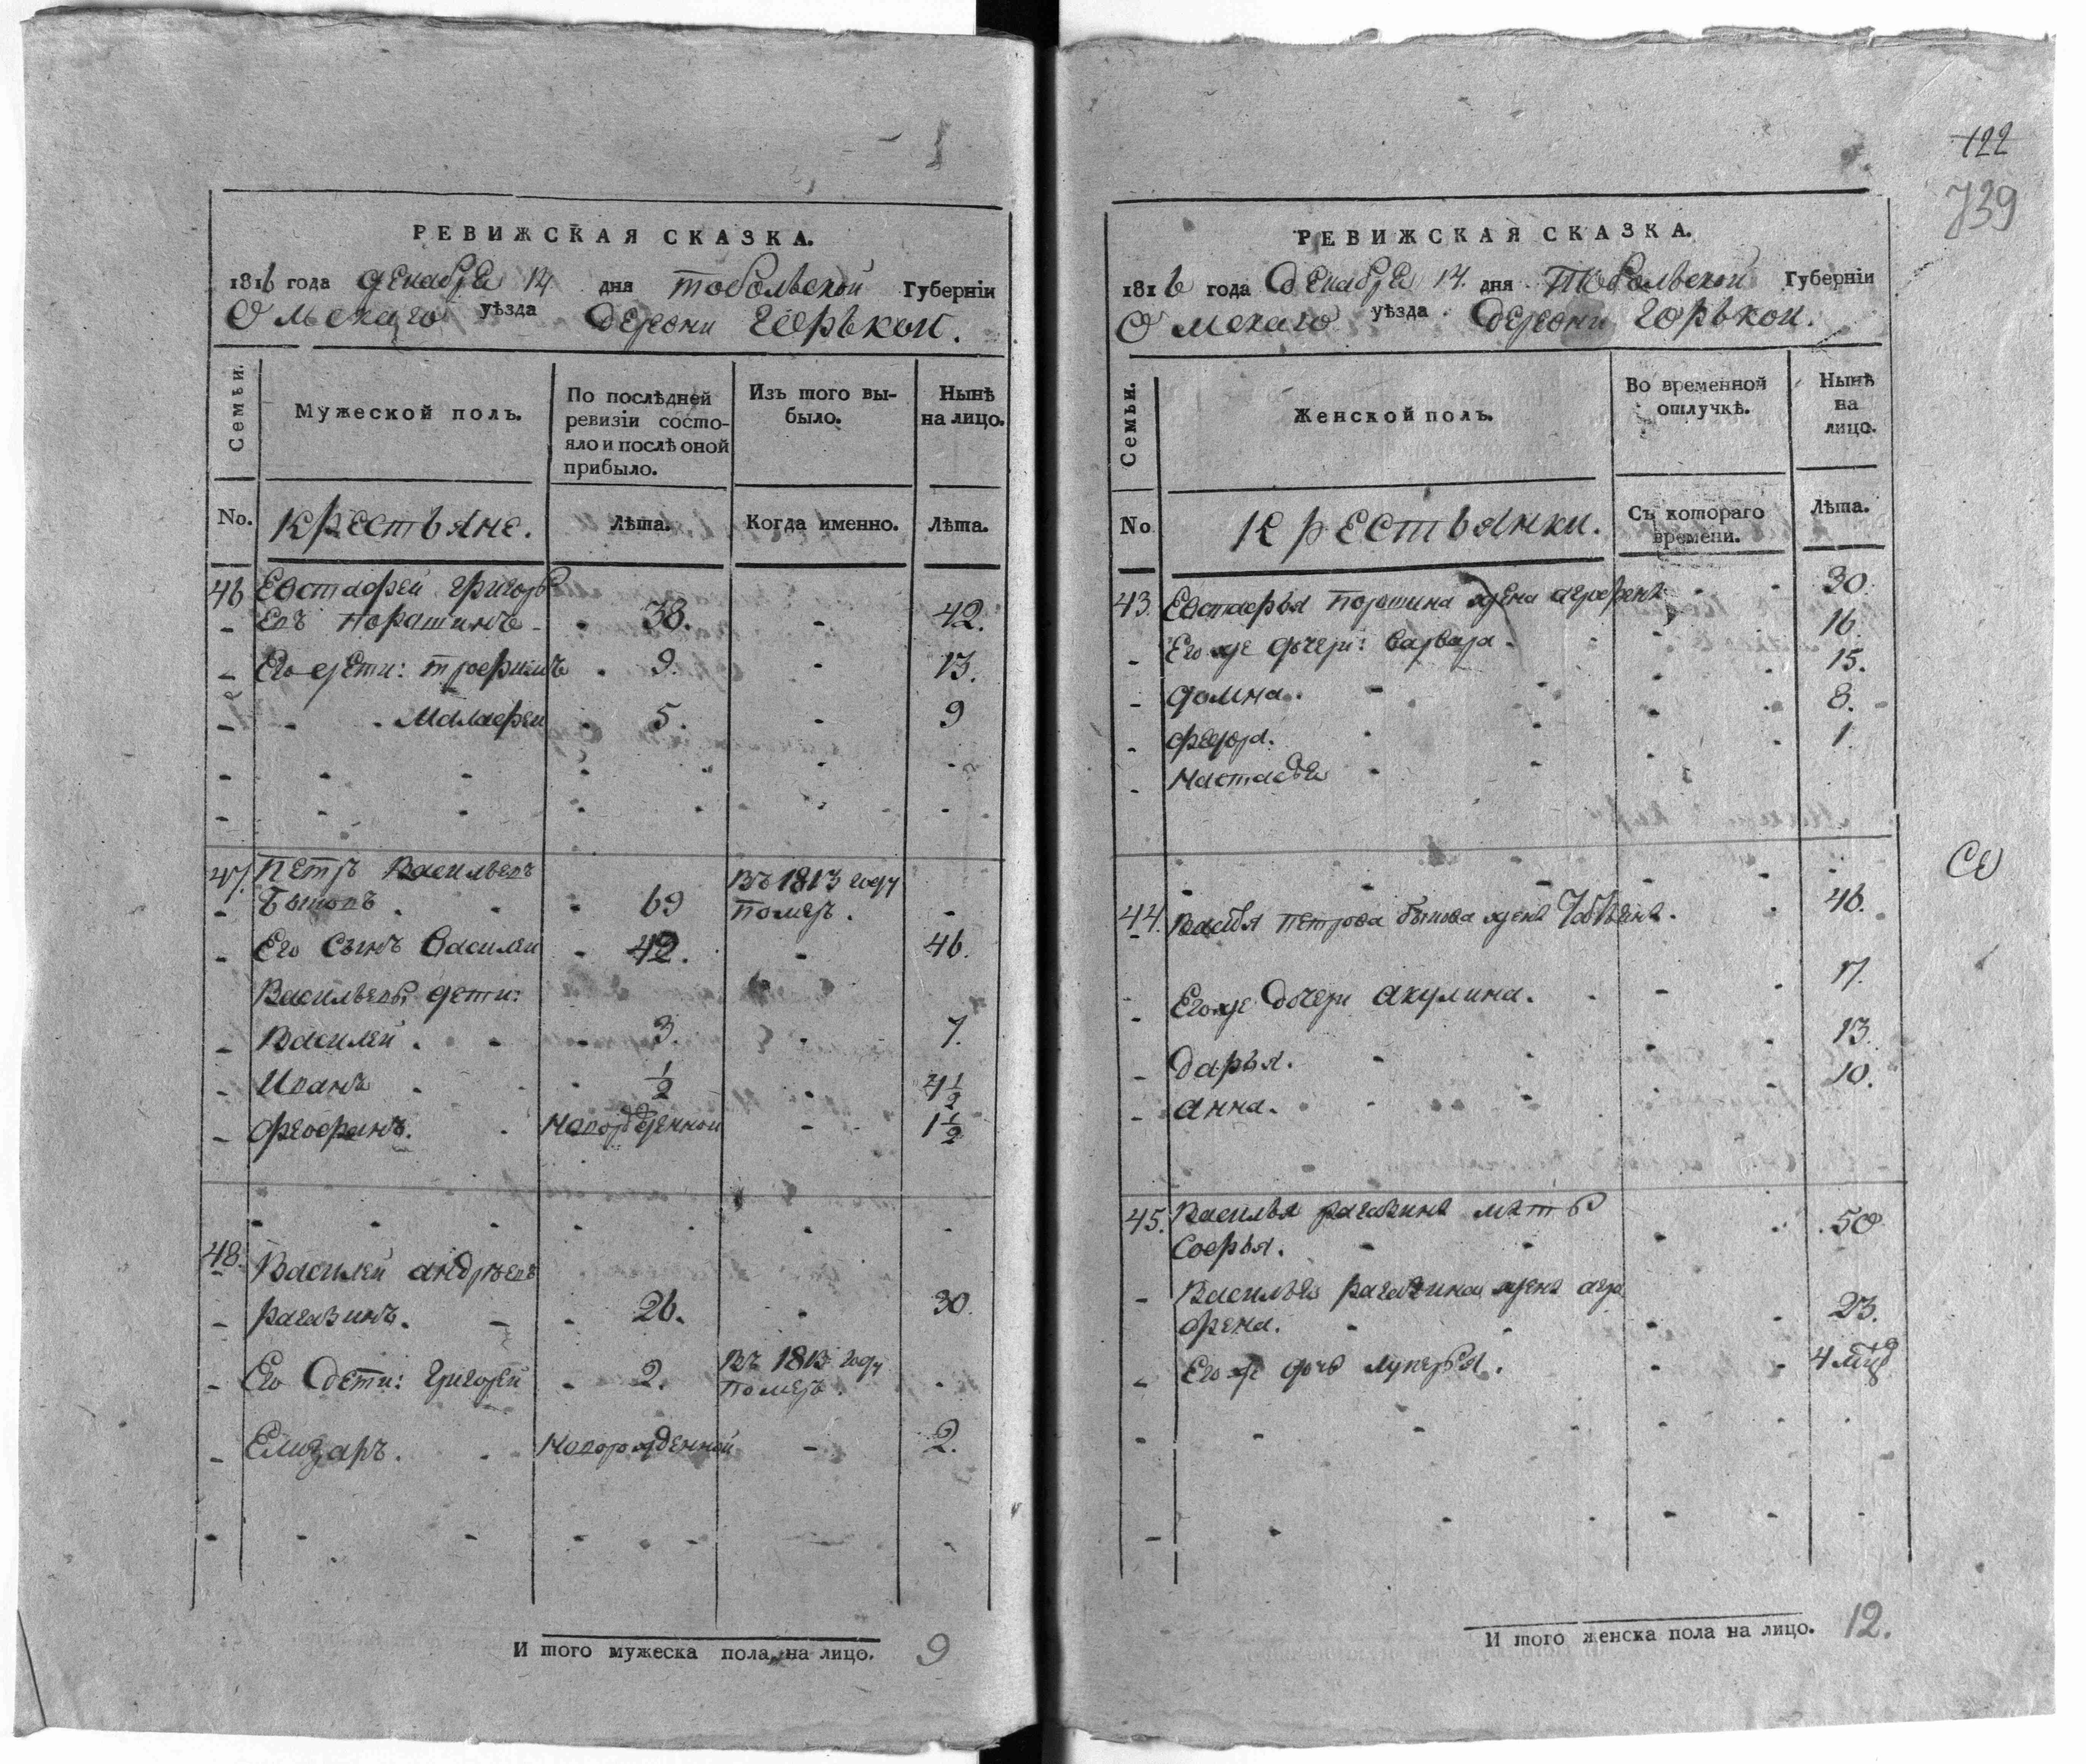 РЕВИЖСКАЯ СКАЗКА.
1816 года декабря 14 дня тобольской Губерніи
Омскаго уѣзда деревни горькои.
Семьи.
Мужеской полъ.
По послѣдней ревизіи состояло и послѣ оной прибыло.
Изъ того выбыло.
Нынѣ на лицо.
No. крестьяне. Лѣта. Когда именно. Лѣта.
46 Евстафей григорь
евъ Порашинъ 38. 42.
Его дети: трофимъ 9. 13.
Малафеи 5. 9
47. Петръ Васильевъ Въ 1813 году
Быковъ 69 померъ.
Его сынъ василеи 42. 46.
Васильевы дети:
Василеи. 3. 7.
Иванъ ½ 4½
феофанъ. новорожденнои 1½
48. Василеи андреевъ
рагозинъ. 26. 30.
Его дети: григореи 2. Въ 1813 году
померъ.
Елизаръ. новорожденнои 2.
И того мужеска пола на лицо. 9
122
739
РЕВИЖСКАЯ СКАЗКА.
1816 года декабря 14. дня Тобольской Губерніи
Омскаго уѣзда деревни горькои.
Семьи.
Женской полъ.
Во временной отлучкѣ.
Нынѣ на лицо.
No Крестьянки. Съ котораго времени. Лѣта.
43. Евстафья Порашина жена агрофена 30.
Его же дочери: варвара 16.
домна. 15.
федора. 8.
настасья 1.
44. Васья петрова быкова жена 46.
Его же дочери акулина. 17.
дарья. 13.
анна. 10.
45. Василья рагозина мать
Софья. 50
Василья рагозина жена агра
фена. 23.
Его же дочь лукерья. 4
И того женска пола на лицо. 12.